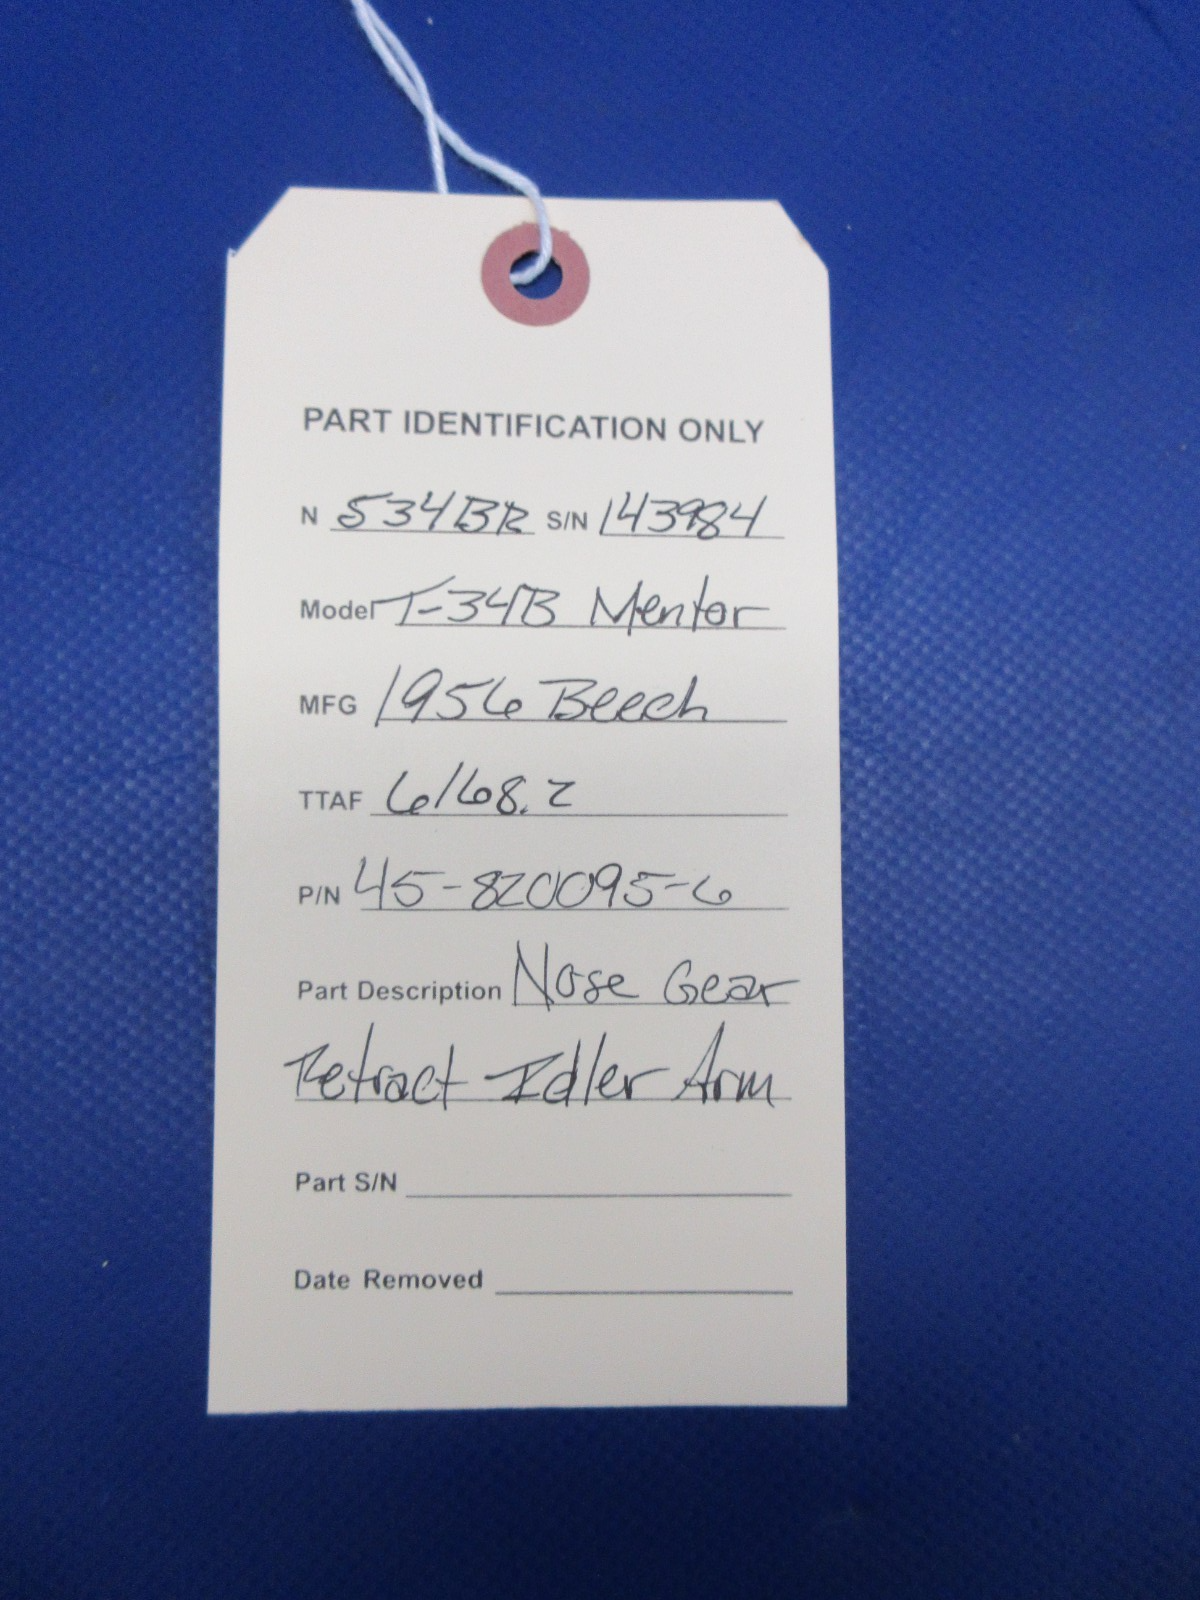 PART IDENTIFICATION ONLY
N 534BR S/N 143984
Model T-34B Mentor
MFG 1956 Beech
TTAF 6168.2
P/N 45-820095-6
Part Description Nose Gear
Retract Idler Arm
Part S/N
Date Removed